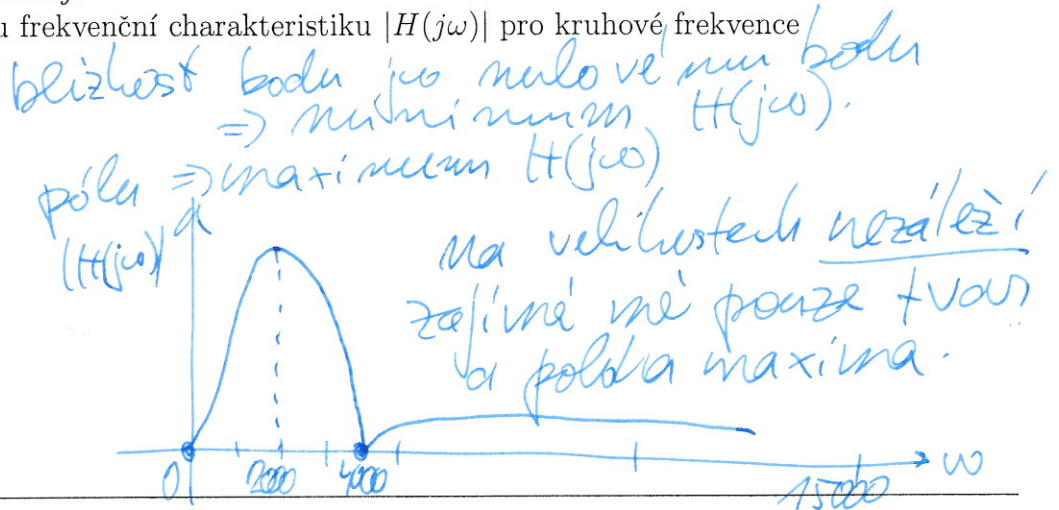 u frekvenční charakteristiku |H(jω)| pro kruhové frekvence
blízkost bodu jω nulovému bodu
=> minimum H(jω).
pólu => maximum H(jω)
|H(jω)|
na velikostech nezáleží
zajímá mě pouze tvar
a poloha maxima.
0 2000 4000 15000 ω